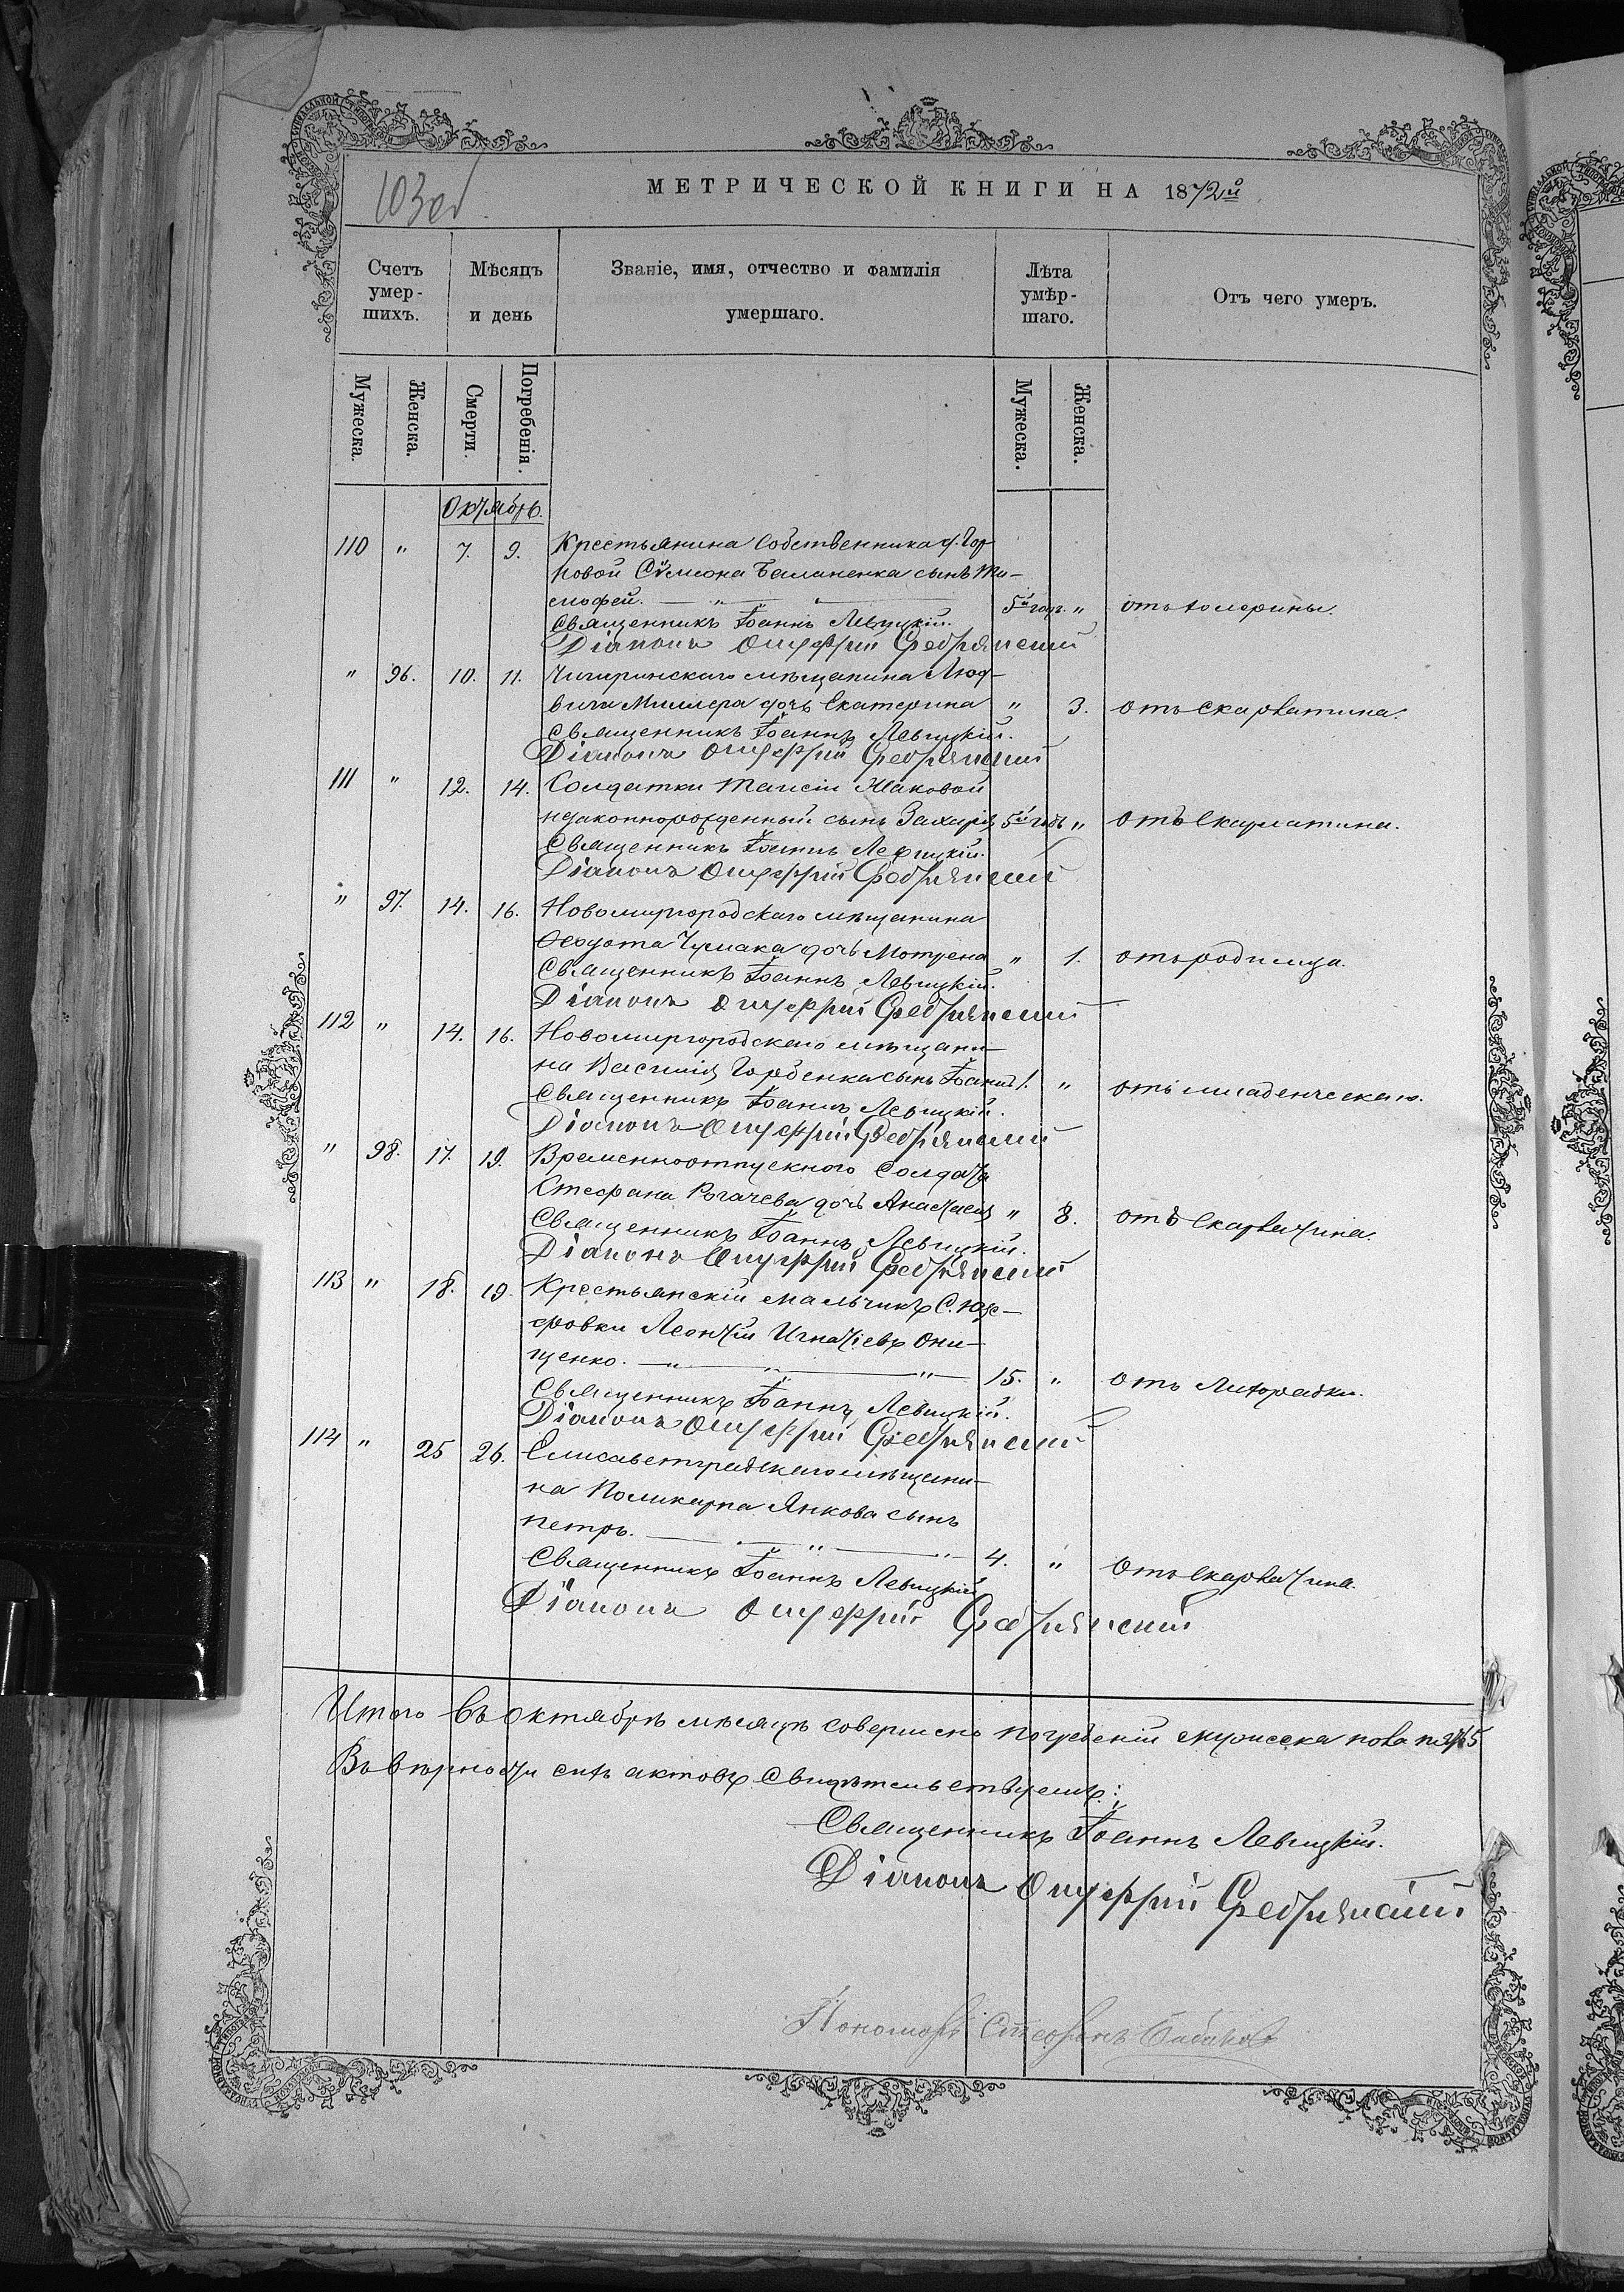 103об
МЕТРИЧЕСКОЙ КНИГИ НА 1872й
Счетъ умер-шихъ.
Мѣсяцъ и день
Званіе, имя, отчество и фамилія умершаго.
Лѣта умѣр-шаго.
Отъ чего умеръ.
Мужеска.
Женска.
Смерти.
Погребенія.
Мужеска.
Женска.
Октябрь.
110 " 7. 9. Крестьянина Собственника
Сѵмеона Баланенка сынъ Ти-
мофей. 5й годъ. " отъ холерины.
Священникъ Іоаннъ Левицкій.
Діаконъ Онуфрій
" 96. 10. 11. Чигиринскаго мѣщанина Люд-
вига Миллера дочь Екатерина " 3. отъ скарлатина.
Священникъ Іоаннъ Левицкій.
Діаконъ Онуфрій
111 " 12. 14. Солдатки Таисіи Жаковой
незаконнорожденный сынъ Захарія 5й годъ " отъ скарлатина.
Священникъ Іоаннъ Левицкій.
Діаконъ Онуфрій
" 97. 14. 16. Новомиргородскаго мѣщанина
Ѳеодота Чумака дочь Мотрена " 1. отъ родимца.
Священникъ Іоаннъ Левицкій.
Діаконъ Онуфрій
112 " 14. 16. Новомиргородскаго мѣщани-
на Василія Горбенка сынъ Іоаннъ 1. " отъ младенческаго.
Священникъ Іоаннъ Левицкій.
Діаконъ Онуфрій
" 98. 17. 19. Временноотпускного Солдата
Стефана Рогачева дочь Анастасія " 8. отъ скарлатина.
Священникъ Іоаннъ Левицкій.
Діаконъ Онуфрій
113 " 18. 19. Крестьянскій мальчикъ С. Юзе-
фовки Леонтій Игнатіевъ Они-
щенко. 15. " отъ Лихорадки.
Священникъ Іоаннъ Левицкій.
Діаконъ Онуфрій
114 " 25 26. Елисаветградскаго мѣщани-
на Поликарпа Янкова сынъ
Петръ. 4. " Отъ скарлатина.
Священникъ Іоаннъ Левицкій
Діаконъ Онуфрій
Итого въ Октябрѣ мѣсяцѣ совершено погребеній мужеска пола 5
Въ вѣрности сихъ актовъ свидѣтельствуемъ:
Священникъ Іоаннъ Левицкій.
Діаконъ Онуфрій
Пономарь Стефанъ